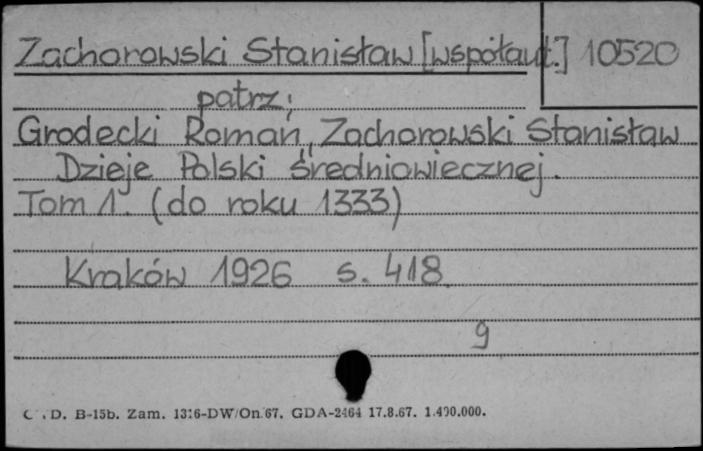 Zachorowski Stanisław [współaut.] 10520
patrz;
Grodecki Roman, Zachorowski Stanisław
Dzieje Polski średniowiecznej.
Tom 1. (do roku 1333)
Kraków 1926 s. 418
9
D. B-15b. Zam. 1316-DW/On/67. GDA-2464 17.8.67. 1.400.000.